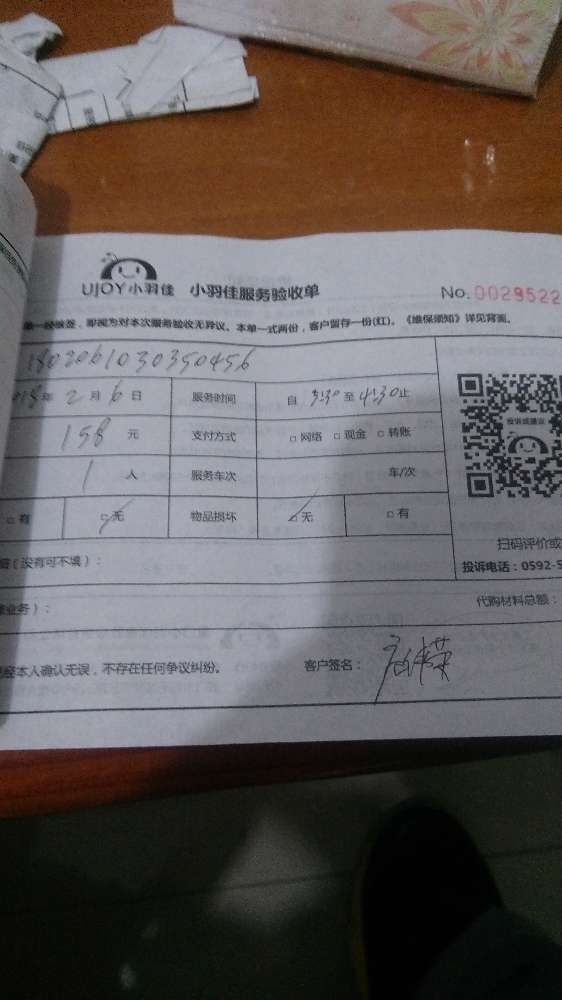 UJOY小羽佳 小羽佳服务验收单 No.0029522
单一经核签,即视为对本次服务验收无异议。本单一式两份,客户留存一份(红)。《维保须知》详见背面。
1802061030350456
018年2月6日 服务时间 自 3:30 至 4:30 止
158 元 支付方式 □ 网络 □ 现金 □ 转账
投诉或建议
1 人 服务车次 车/次
□ 有 □ 无 物品损坏 □ 无 □ 有
扫码评价或
(没有可不填):
投诉电话:0592-5
业务):
代购材料总额:
经本人确认无误,不存在任何争议纠纷。 客户签名: